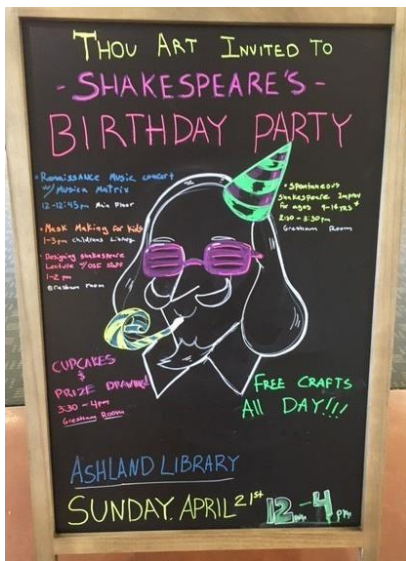 THOU ART INVITED TO
- SHAKESPEARE'S -
BIRTHDAY PARTY
• Renaissance Music concert
w/ Musica Matrix
12-12:45pm Main Floor
• Mask Making for kids
1-3pm childrens Library
• Designing Shakespeare
Lecture w/ OSF Staff
1-2 pm
Gresham room
• Spontaneous
Shakespeare Improv
for ages 9-14 yrs
2:30-3:30pm
Gresham Room
CUPCAKES
&
PRIZE DRAWING!
3:30-4pm
Gresham Room
FREE CRAFTS
All DAY!!!
ASHLAND LIBRARY
SUNDAY. APRIL 21st 12pm-4pm